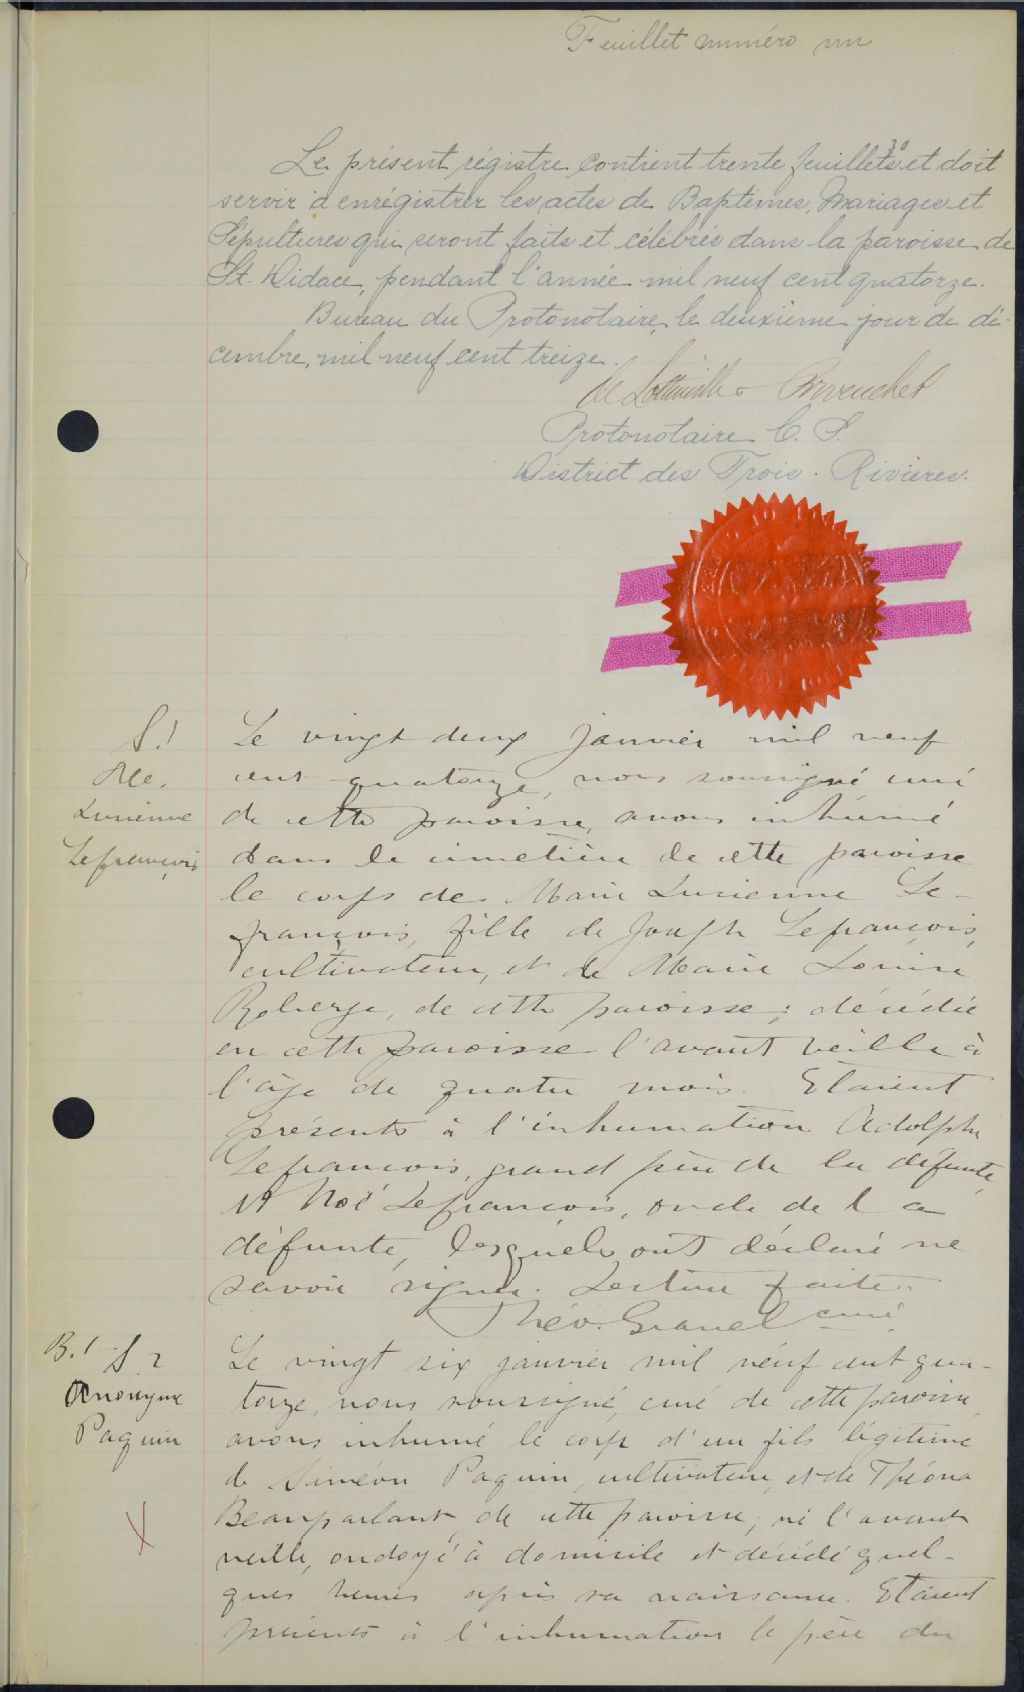 Feuillet numéro un
Le présent régistre contient trente feuillets 30 et doit
servir à enrégistrer les actes de Baptêmes, Mariages et
Sépultures qui seront faits et célébrés dans la paroisse de
St. Didace, pendant l'année mil neuf cent quatorze.
Bureau du Protonotaire, le deuxième jour de dé-
cembre, mil neuf cent treize.
Protonotaire C. S.
District des Trois-Rivières.
S. 1
Mie.
Lucienne
Lefrançois
Le vingt deux janvier mil neuf
cent quatorze, nous soussigné curé
de cette paroisse, avons inhumé
dans le cimetière de cette paroisse
le corps de Marie Lucienne Le-
françois, fille de Joseph Lefrançois,
cultivateur, et de Marie Louise
Roberge, de cette paroisse; décédée
en cette paroisse l'avant veille à
l'âge de quatre mois. Etaient
présents à l'inhumation Adolphe
Lefrancois, grand père de la défunte,
et Noé Lefrançois, oncle de la
défunte, lesquels ont déclaré ne
savoir signer. Lecture faite.
Théo. Gravel curé
B. 1 S. 2
Anonyme
Paquin
X
Le vingt six janvier mil neuf cent qua-
torze, nous soussigné, curé de cette paroisse
avons inhumé le corps d'un fils légitime
de Siméon Paquin, cultivateur, et de Théona
Beauparlant, de cette paroisse, né l'avant
veille, ondoyé à domicile et décédé quel-
ques heures après sa naissance. Etaient
présents à l'inhumation le père du